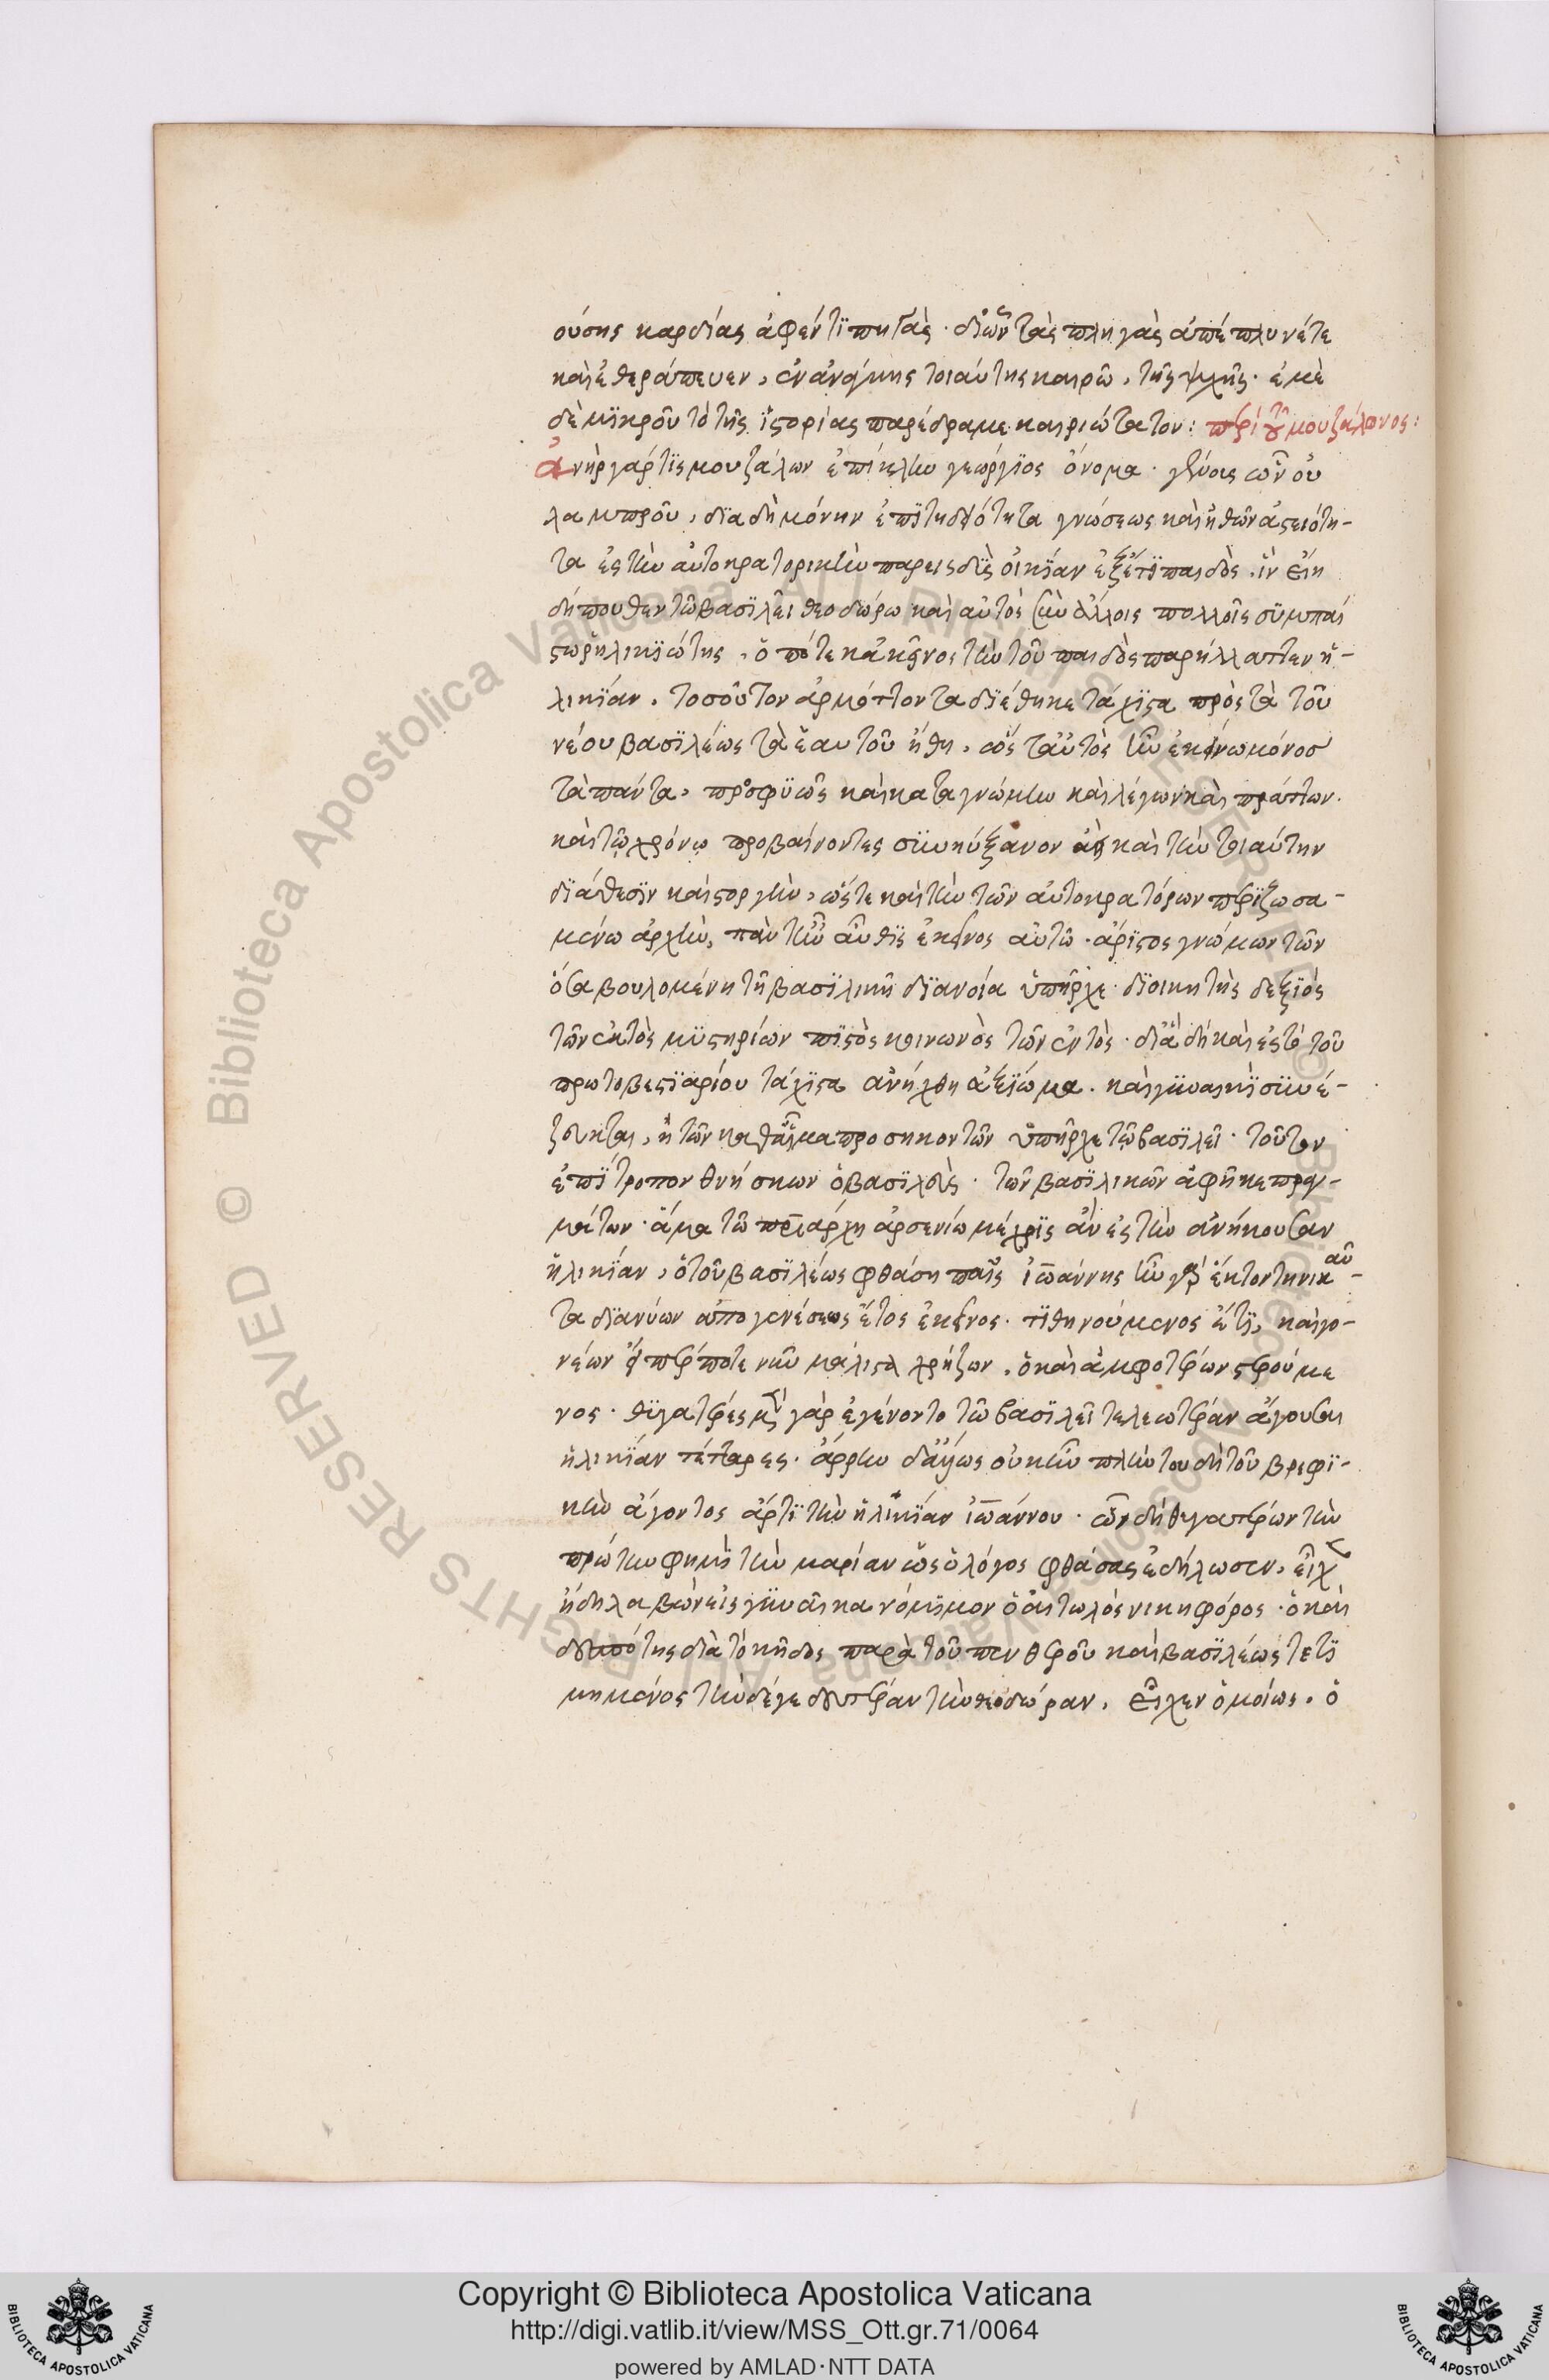 ούσης καρδίας ἀφέντϊ πηγὰς· δἰῶν τὰς πληγὰς ἀπέπλυνέτε
καὶ ἐθεράπευεν, ἐν ἀνάγκης τοιαύτης καιρῶ, τῆς ψυχῆς· ἐμὲ
δὲ μϊκροῦ τὸ τῆς ϊστορίας παρέδραμε καιριώτατον: περὶ τοῦ μουζάλωνος:
ἀνὴρ γάρ τϊς μουζάλων ἐπίκλην γεώργϊος ὄνομα· γένους ὢν οὐ
λαμπροῦ, δϊα δὴ μόνην ἐπϊτηδειότητα γνώσεως καὶ ἠθῶν ἀστειότη-
τα ἐς τὴν αὐτοκρατορικὴν παρεισδὺς οἰκϊαν ἐξέτϊ παιδὸς. ἦν
δήπουθεν τῶ βασϊλεῖ θεοδώρω καὶ αὐτὸς σὺν ἄλλοις πολλοῖς συμπαί
στωρ ἡλικϊώτης, ὁπότε κἀκεῖνος τὴν τοῦ παιδὸς παρήλλαττεν ἡ-
λικϊαν. τοσοῦτον ἁρμόττοντα δϊέθηκε τάχϊστα πρὸς τὰ τοῦ
νέου βασϊλέως τὰ ἑαυτοῦ ἤθη, ὡς ταὐτὸς ἦν ἐκείνω μόνος
τὰ πάντα, προσφυῶς καὶ κατα γνώμην καὶ λέγων καὶ πράττων.
καὶ τῶ χρόνω προβαίνοντες συνηύξανον ἀεὶ καὶ τὴν τοιαύτην
δϊάθεσϊν καὶ στοργὴν, ὥστε καὶ τὴν τῶν αὐτοκρατόρων περϊζωσα-
μένω ἀρχὴν, πὰν ἦν αὖθϊς ἐκεῖνος αὐτῶ· ἄρϊστος γνώμων τῶν
ὅσα βουλομένη τῆ βασϊλικῆ δϊανοία ὑπῆρχε· δϊοικητὴς δεξϊὸς
τῶν ἐκτὸς μυστηρίων πϊστὸς κοινωνὸς τῶν ἐντὸς· δϊἃ δὴ καὶ ἐς τὸ τοῦ
πρωτοβεστϊαρίου τάχϊστα ἀνήχθη ἀξϊωμα. καὶ γυναικϊ συνέ-
ζευκται, ἣ τῶν καθαἷμα προσηκοντῶν ὑπῆρχε τῶ βασϊλεῖ· τοῦτον
ἐπϊτροπον θνήσκων ὁ βασϊλεὺς· τῶν βασϊλικῶν ἀφῆκε πραγ-
μάτων· ἅμα τῶ πριάρχη ἀρσενίω μέχρϊς ἂν ἐς τὴν ἀνήκουσαν
ἡλικϊαν, ὁ τοῦ βασϊλέως φθάση παῖς ἰωάννης ἦν γὰρ ἕκτον τηνικαῦ-
τα δϊανύων ἀπο γενέσεως ἔτος ἐκεῖνος· τϊθηνούμενος ἔτϊ, καὶ γο-
νέων εἴπερ ποτε νῦν μάλιστα χρήζων, ὁ καὶ ἀμφοτέρων στερούμε
νος· θυγατέρες μὲν γὰρ ἐγένοντο τῶ βασϊλεῖ τελεωτέραν ἄγουσαι
ἡλικϊαν τέτταρες· ἄρρην δἄλλως οὐκ ἦν πλὴν του δὴ τοῦ βρεφϊ-
κὴν ἄγοντος ἄρτϊ τὴν ἡλικϊαν ἰωάννου· ὧν δὴ θυγατέρων τὴν
πρώτην φημϊ τὴν μαρίαν ὡς ὁ λόγος φθάσας ἐδήλωσεν, εἶχεν
ἤδη λαβὼν εἰς γυναῖκα νόμϊμον ὁ αἰτωλὸς νικηφόρος· ὁ καὶ
δεσπότης διὰ τὸ κῆδος παρὰ τοῦ πενθεροῦ καὶ βασϊλέως τετϊ
μημένος τὴν δέγε δευτέραν τὴν θεοδώραν, εἶχεν ὁμοίως. ὁ
Copyright © Biblioteca Apostolica Vaticana
http://digi.vatlib.it/view/MSS_Ott.gr.71/0064
powered by AMLAD·NTT DATA